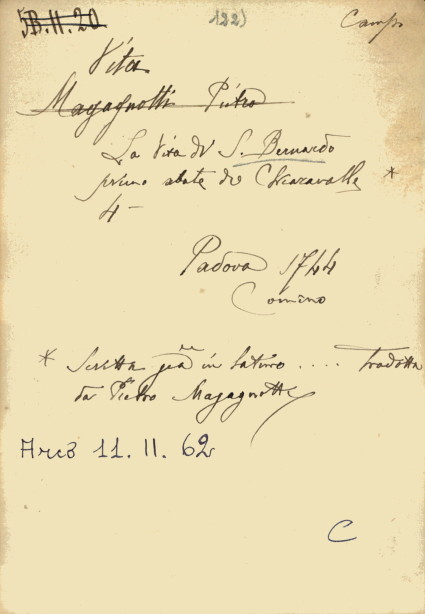 5B.11.20
122)
Camp.
Vita
Magagnotti Pietro
La Vita di S. Bernardo
primo abate di Chiaravalle *
4-
Padova 1744
Comino
* Scritta già in latino .... tradotta
da Pietro Magagnotti
11.11.62
C